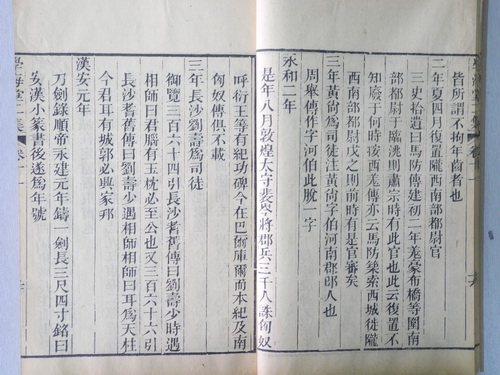 皆所謂不拘年齒者也
二年夏四月復置隴西南部都尉官
三史拾遺曰馬防傳建初二年羌豪布橋等圍南
部都尉于臨洮則肅宗時有此官也此云復置不
知廢于何時按西羌傳亦云馬防築索西城徙隴
西南部都尉戍之則前時有是官審矣
三年黃尚爲司徒注黃尚字伯河南郡邔人也
周舉傳作字河伯此脫一字
永和二年
是年八月敦煌太守裴岑將郡兵三千人誅匈奴
呼衍王等有紀功碑今在巴爾庫爾而本紀及南
匈奴傳俱不載
三年長沙劉壽爲司徒
御覽三百六十四引長沙耆舊傳曰劉壽少時遇
相師曰君腦有玉枕必至公也又三百六十六引
長沙耆舊傳曰劉壽少遇相師相師曰耳爲天柱
今君耳有城郭必典家邦
漢安元年
刀劍錄順帝永建元年鑄一劍長三尺四寸銘曰
安漢小篆書後遂爲年號
學海堂二集 卷十一